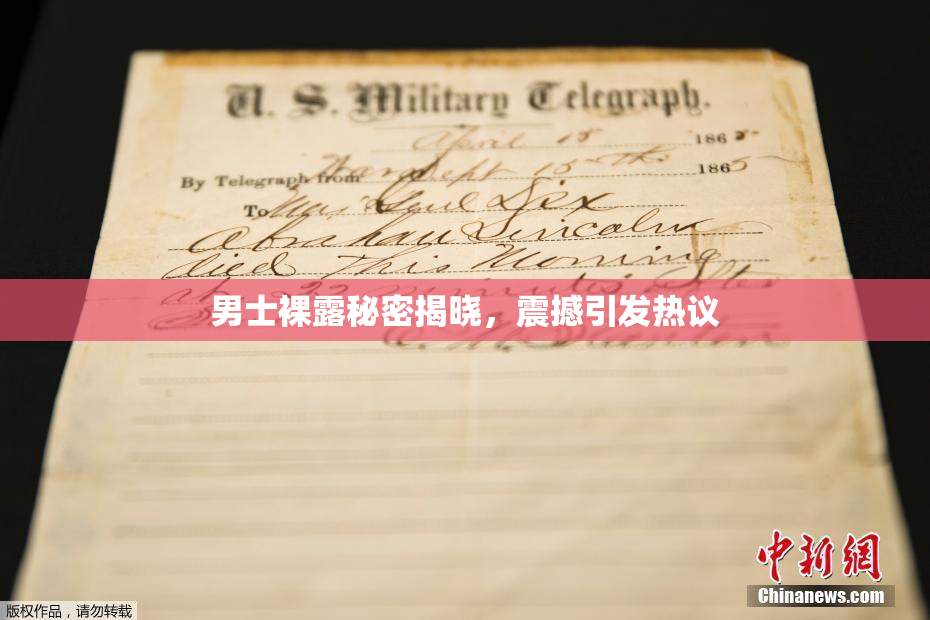 U. S. Military Telegraph.
April 15 1865
By Telegraph from War Dept 15th 1865
To Maj Genl Dix
Abraham Lincoln
died This Morning
at 22 minutes after
男士裸露秘密揭晓，震撼引发热议
中新网
Chinanews.com
版权作品，请勿转载